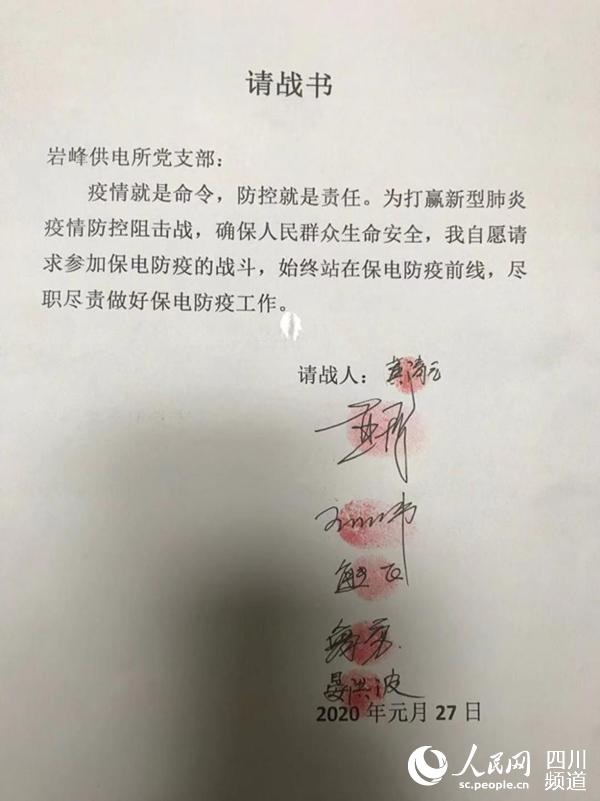 请战书
岩峰供电所党支部：
疫情就是命令，防控就是责任。为打赢新型肺炎
疫情防控阻击战，确保人民群众生命安全，我自愿请
求参加保电防疫的战斗，始终站在保电防疫前线，尽
职尽责做好保电防疫工作。
请战人：
晏洪波
2020 年元月 27 日
人民网 四川频道
sc.people.cn